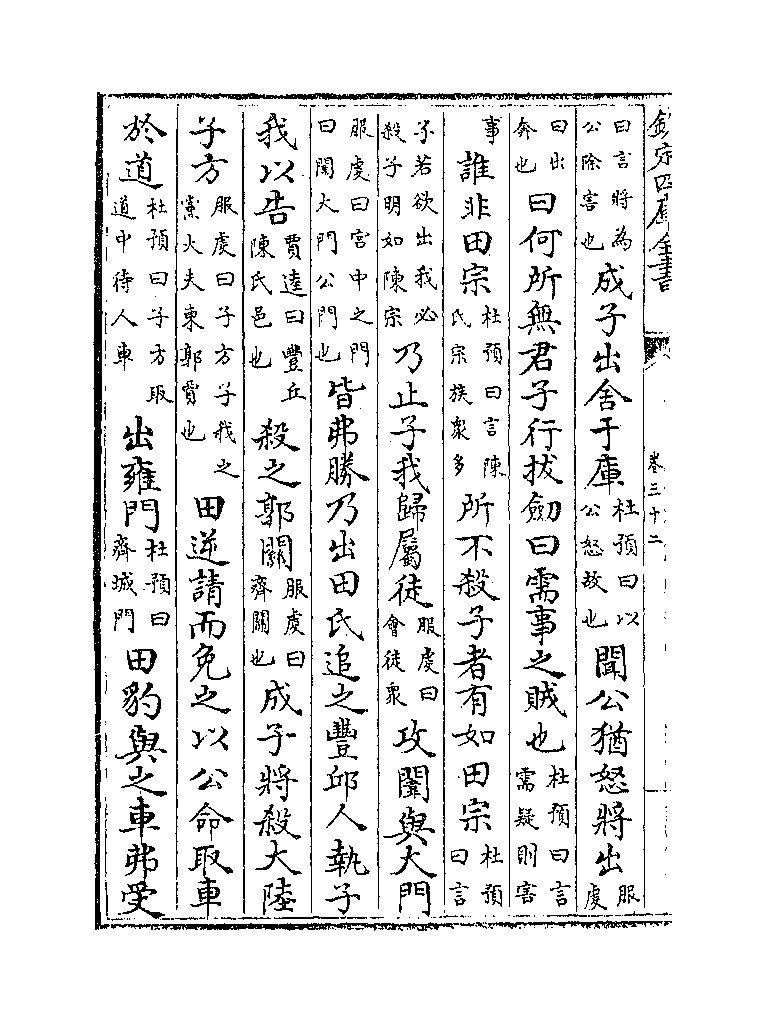 欽定四庫全書 卷三十二
曰言將為公除害也成子出舍于庫杜預曰以公怒故也聞公猶怒將出服虔
曰出奔也曰何所無君子行拔劒曰需事之賊也杜預曰言需疑則害
事誰非田宗杜預曰言陳氏宗族衆多所不殺子者有如田宗杜預曰言
子若欲出我必殺子明如陳宗乃止子我歸屬徒服虔曰會徒衆攻闈與大門
服虔曰宮中之門曰闈大門公門也皆弗勝乃出田氏追之豐邱人執子
我以告賈逵曰豐丘陳氏邑也殺之郭關服虔曰齊關也成子將殺大陸
子方服虔曰子方子我之黨大夫東郭賈也田逆請而免之以公命取車
於道杜預曰子方取道中待人車出雍門杜預曰齊城門田豹與之車弗受